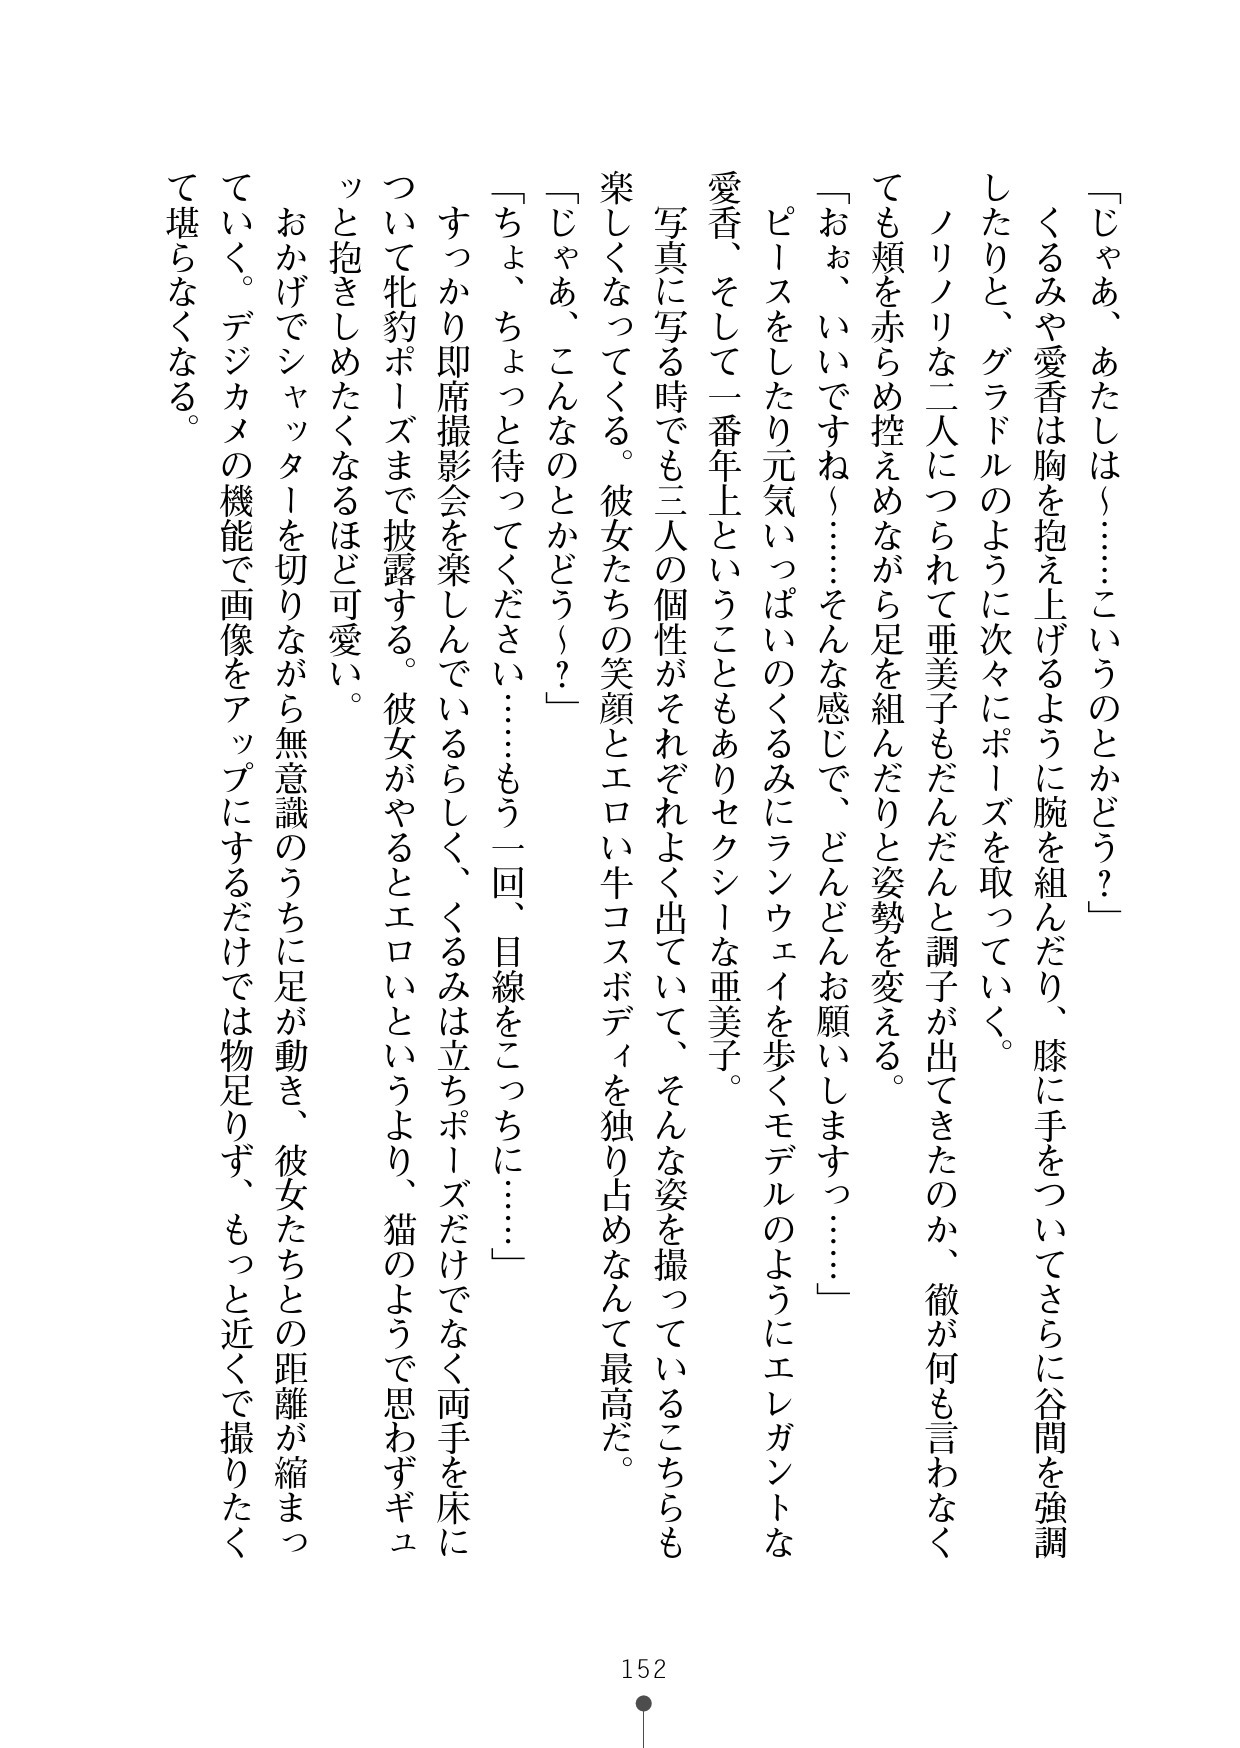 「じゃあ、あたしは～……こいうのとかどう？」
くるみや愛香は胸を抱え上げるように腕を組んだり、膝に手をついてさらに谷間を強調
したりと、グラドルのように次々にポーズを取っていく。
ノリノリな二人につられて亜美子もだんだんと調子が出てきたのか、徹が何も言わなく
ても頬を赤らめ控えめながら足を組んだりと姿勢を変える。
「おぉ、いいですね～……そんな感じで、どんどんお願いしますっ……」
ピースをしたり元気いっぱいのくるみにランウェイを歩くモデルのようにエレガントな
愛香、そして一番年上ということもありセクシーな亜美子。
写真に写る時でも三人の個性がそれぞれよく出ていて、そんな姿を撮っているこちらも
楽しくなってくる。彼女たちの笑顔とエロい牛コスボディを独り占めなんて最高だ。
「じゃあ、こんなのとかどう～？」
「ちょ、ちょっと待ってください……もう一回、目線をこっちに……」
すっかり即席撮影会を楽しんでいるらしく、くるみは立ちポーズだけでなく両手を床に
ついて牝豹ポーズまで披露する。彼女がやるとエロいというより、猫のようで思わずギュ
ッと抱きしめたくなるほど可愛い。
おかげでシャッターを切りながら無意識のうちに足が動き、彼女たちとの距離が縮まっ
ていく。デジカメの機能で画像をアップにするだけでは物足りず、もっと近くで撮りたく
て堪らなくなる。
152